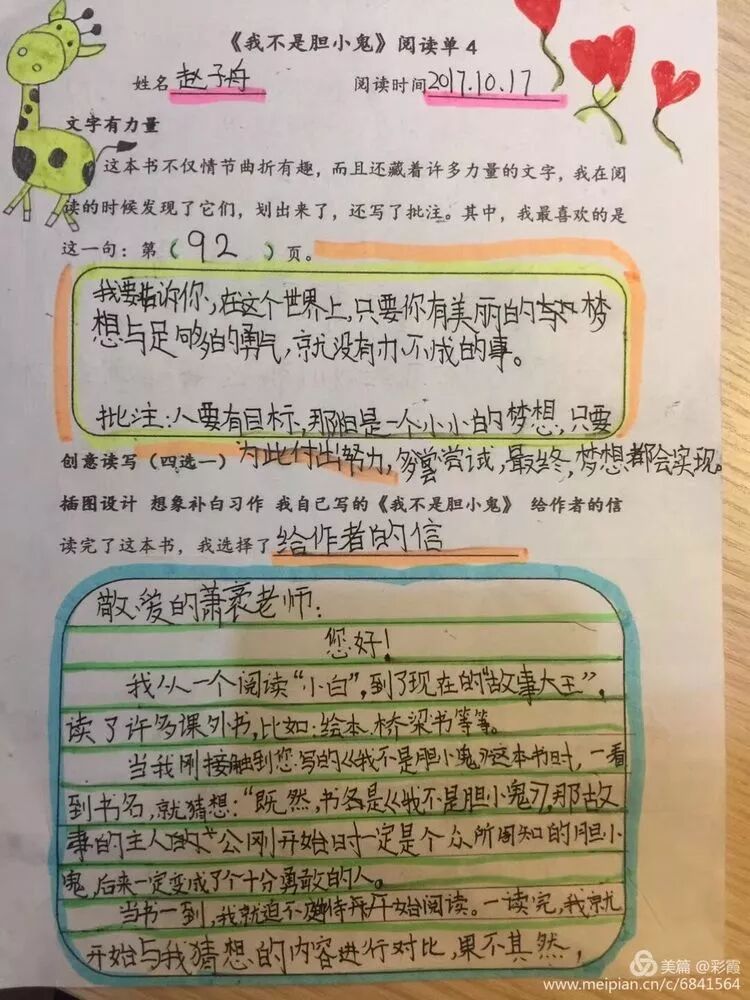 《我不是胆小鬼》阅读单 4
姓名 赵子舟 阅读时间 2017.10.17
文字有力量
这本书不仅情节曲折有趣，而且还藏着许多力量的文字，我在阅
读的时候发现了它们，划出来了，还写了批注。其中，我最喜欢的是
这一句：第（92）页。
我要告诉你，在这个世界上，只要你有美丽的梦
想与足够多的勇气，就没有办不成的事。
批注：人要有目标，那怕是一个小小的梦想，只要
为此付出努力，多尝尝试，最终，梦想都会实现。
创意读写（四选一）
插图设计 想象补白习作 我自己写的《我不是胆小鬼》 给作者的信
读完了这本书，我选择了 给作者的信
敬爱的萧袤老师：
您好！
我从一个阅读“小白”，到了现在的“故事大王”，
读了许多课外书，比如：绘本、桥梁书等等。
当我刚接触到您写的《我不是胆小鬼》这本书时，一看
到书名，就猜想：“既然，书名是《我不是胆小鬼》，那故
事的主人公刚开始时一定是个众所周知的胆小
鬼，后来一定变成了个十分勇敢的人。
当书一到，我就迫不及待开始阅读。一读完，我就
开始与我猜想的内容进行对比，果不其然，
美篇 @彩霞
www.meipian.cn/c/6841564